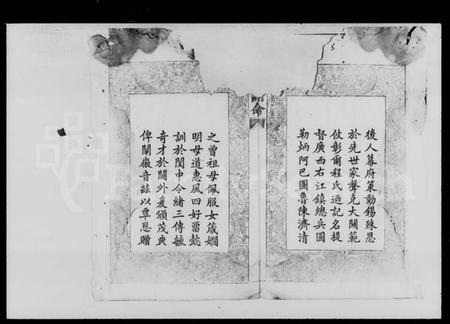 倫
後人幕府策勛錫殊恩
於先世家聲克大闡範
攸彰爾程氏迺記名提
督廣西右江鎮總兵圖
勒炳阿巴圖魯陳濟清
之曾祖母佩服女箴嫻
明母道惠風四好著懿
訓於閨中令緒三傳毓
奇才於閫外爰頒茂典
俾闡徽音玆以覃恩贈